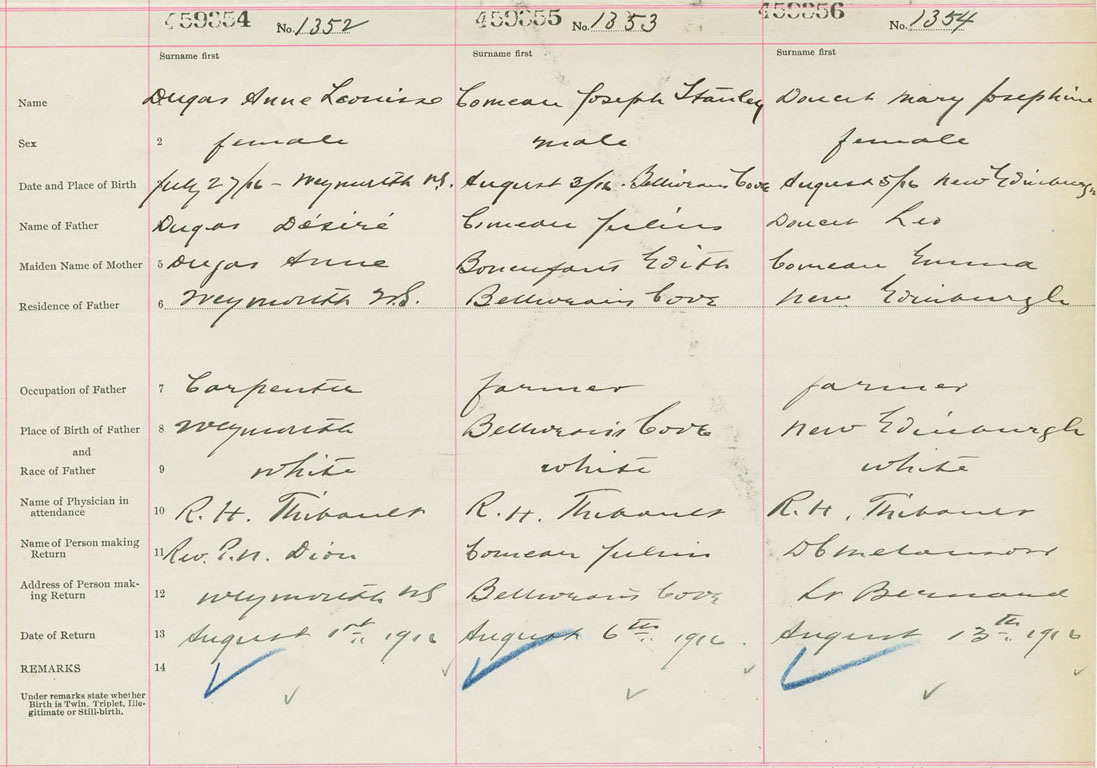 459354 No. 1352 459355 No. 1353 459356 No. 1354
Surname first Surname first Surname first
Name Dugas Anne Leonisse Comeau Joseph Stanley Doucet Mary Josephine
Sex 2 female male female
Date and Place of Birth July 27/16 - Weymouth N.S. August 3/16. Belliveau's Cove August 5/16 New Edinburgh
Name of Father Dugas Désiré Comeau Julius Doucet Leo
Maiden Name of Mother 5 Dugas Anne Edith Comeau Emma
Residence of Father 6 Weymouth N.S. Belliveau's Cove New Edinburgh
Occupation of Father 7 Carpenter farmer farmer
Place of Birth of Father 8 Weymouth Belliveau's Cove New Edinburgh
and
Race of Father 9 white white white
Name of Physician in
attendance 10 R. H. Thibault R. H. Thibault R. H. Thibault
Name of Person making
Return 11 Rev. P. N. Dion Comeau Julius D C Melanson
Address of Person mak-
ing Return 12 Weymouth NS Belliveau's Cove St Bernard
Date of Return 13 August 1st 1916 August 6th 1916. August 13th 1916
REMARKS 14
Under remarks state whether
Birth is Twin, Triplet, Ille-
gitimate or Still-birth.